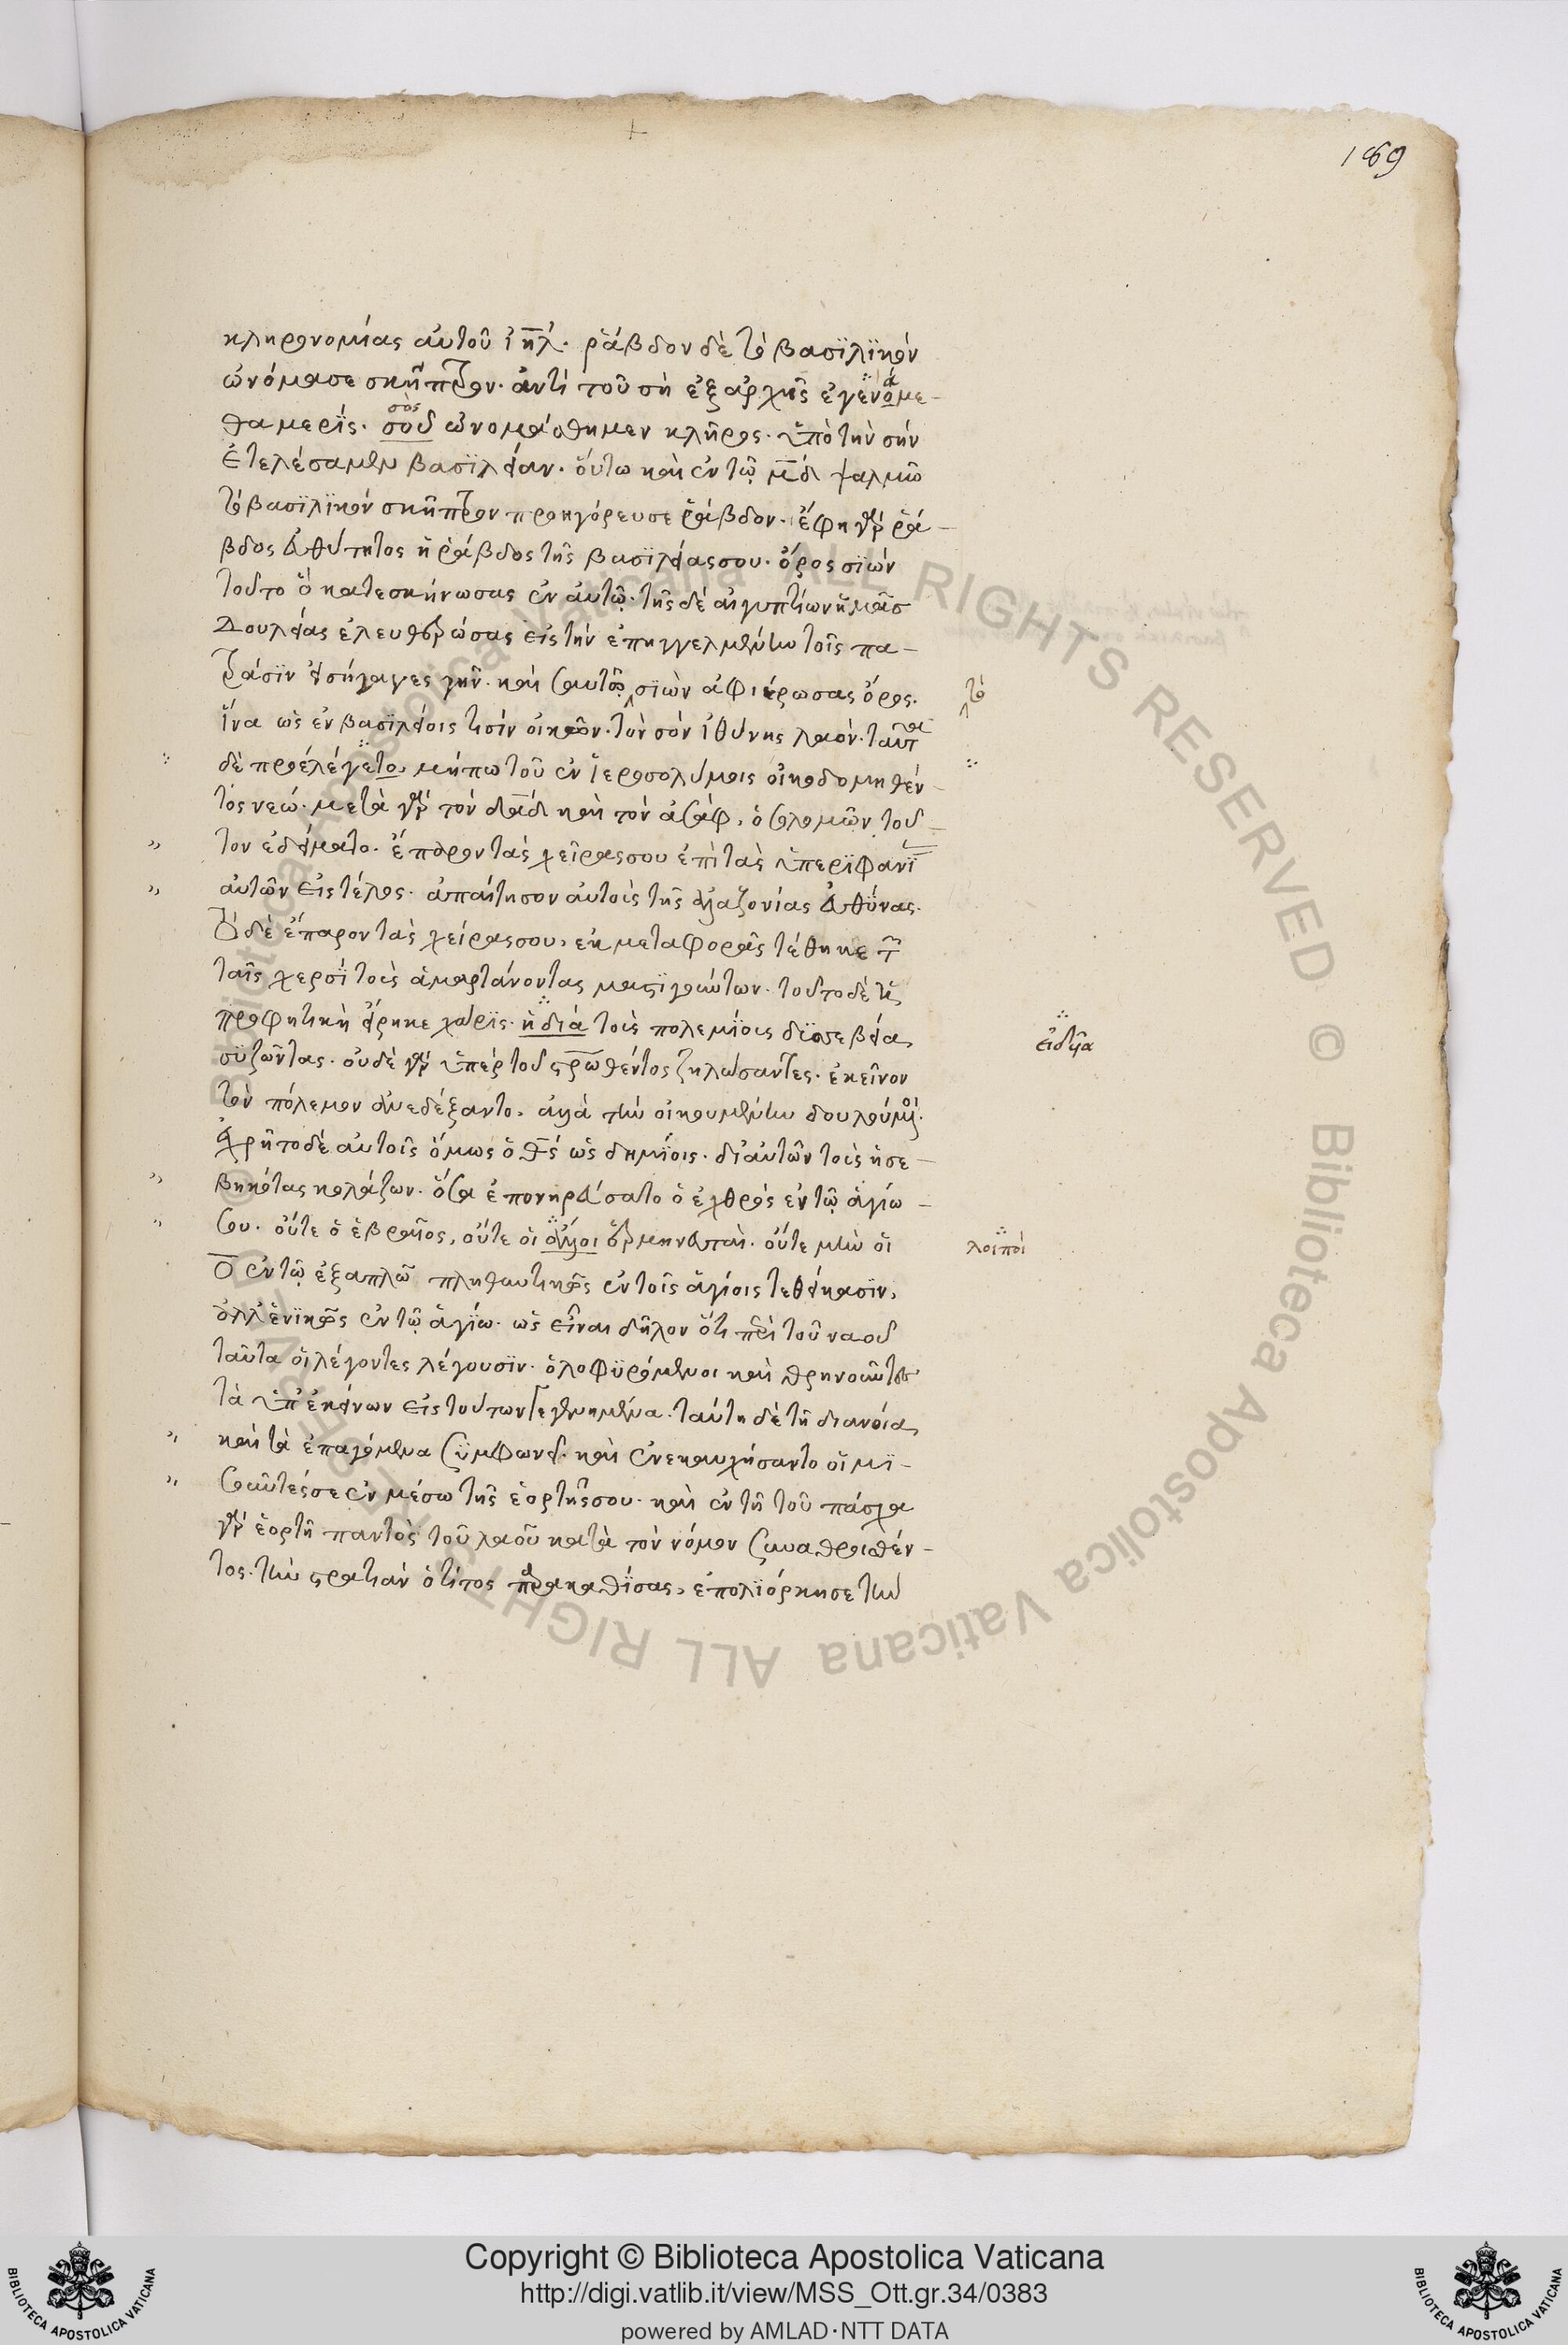 189
κληρονομίας αὐτοῦ ἰη̅λ. ῥάβδον δὲ τὸ βασϊλϊκὸν
ὠνόμασε σκῆπτρον. ἀντὶ τοῦ σὴ ἐξαρχῆς ἐγενόμε-
θα μερίς. σοῦ ὠνομάσθημεν κλῆρος. ὑπὸ τὴν σὴν
ἐτελέσαμεν βασϊλείαν. οὕτω καὶ ἐν τῷ μ̅δ ψαλμῶ
τὸ βασϊλϊκὸν σκῆπτρον προηγόρευσε ῥάβδον. ἔφη γὰρ ῥά-
βδος εὐθύτητος ἡ ῥάβδος τῆς βασϊλείας σου. ὄρος σϊὼν
τοῦτο ὃ κατεσκήνωσας ἐν αὐτῷ. τῆς δὲ αἰγυπτίων ἡμᾶς
δουλείας ἐλευθερώσας εἰς τὴν ἐπηγγελμένην τοῖς πα-
τράσϊν εἰσήγαγες γῆν. καὶ σαυτῷ σϊὼν ἀφιέρωσας ὄρος.
τὸ
ἵνα ὡς ἐν βασϊλείοις τισὶν οἰκῶν. τὸν σὸν ἰθύνης λαὸν. ταῦτα
δὲ προέλέγετο μήπω τοῦ ἐν ἱεροσολύμοις οἰκοδομηθέν-
τος νεώ. μετὰ γὰρ τὸν δα̅δ καὶ τὸν ἀσάφ, ὁ σολομῶν τοῦ-
τον ἐδείματο. ἔπαρον τὰς χεῖρας σου ἐπὶ τὰς ὑπερϊφανϊ
αὐτῶν εἰς τέλος. ἀπαίτησον αὐτοὺς τῆς ἀλαζονίας εὐθύνας.
τὸ δὲ ἔπαρον τὰς χείρας σου, ἐκ μεταφορᾶς τέθηκε τ̅
ταῖς χερσῒ τοὺς ἁμαρτάνοντας μαστϊγούντων. τοῦτο δὲ ἡ
προφητικὴ εἴρηκε χάρϊς. ἡ διὰ τοὺς πολεμίους δϊασεβεία
εἰδυῖα
συζῶντας. οὐδὲ γὰρ ὑπὲρ τοῦ σταυρωθέντος ζηλώσαντες. ἐκεῖνον
τὸν πόλεμον ἀνεδέξαντο. ἀλλὰ τὴν οἰκουμένην δουλούμενοι.
ἐχρῆτο δὲ αὐτοῖς ὅμως ὁ θς ὡς δημίοις. δι' αὐτῶν τοὺς ἠσε-
βηκότας κολάζων. ὅσα ἐπονηρεύσατο ὁ ἐχθρὸς ἐν τῷ ἁγίω
σου. οὔτε ὁ ἑβραῖος, οὔτε οἱ ἄλλοι ἑρμηνευταὶ. οὔτε μὴν οἱ
λοιποὶ
ο̅ ἐν τῷ ἑξαπλῶ πληθυντικῶς ἐν τοῖς ἁγίοις τεθείκασϊν,
ἀλλ' ἑνϊκῶς ἐν τῷ ἁγίω. ὡς εἶναι δῆλον ὅτι περὶ τοῦ ναοῦ
ταῦτα οἱ λέγοντες λέγουσϊν. ὀλοφϋρόμενοι καὶ θρηνοῦντες
τὰ ὑπ' ἐκείνων εἰς τοῦτον γεγενημένα. ταύτη δὲ τῆ διανοία
καὶ τὰ ἐπαγόμενα σϋμφωνεῖ. καὶ ἐνεκαυχήσαντο οἱ μϊ-
σοῦντές σε ἐν μέσω τῆς ἑορτῆς σου. καὶ ἐν τῆ τοῦ πάσχα
γὰρ ἑορτῆ παντὸς τοῦ λαοῦ κατὰ τὸν νόμον συναθροισθέν-
τος. τὴν στρατιὰν ὁ τίτος παρακαθίσας, ἐπολϊόρκησε τὴν
Copyright © Biblioteca Apostolica Vaticana
http://digi.vatlib.it/view/MSS_Ott.gr.34/0383
powered by AMLAD·NTT DATA
BIBLIOTECA APOSTOLICA VATICANA
BIBLIOTECA APOSTOLICA VATICANA
© Biblioteca Apostolica Vaticana ALL RIGHTS RESERVED © Biblioteca Apostolica Vaticana ALL RIGHTS RESERVED